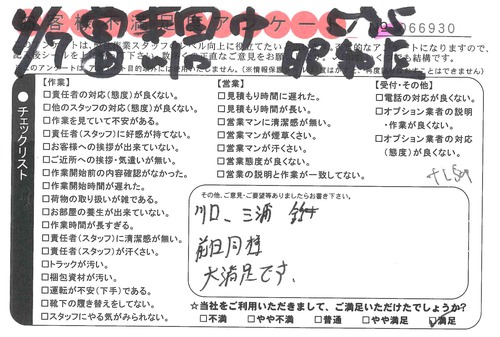 お客様不満足度アンケート
066930
【作業】
□責任者の対応(態度)が良くない。
□他のスタッフの対応(態度)が良くない。
□作業を見ていて不安がある。
□責任者(スタッフ)に好感が持てない。
□お客様への挨拶が出来ていない。
□ご近所への挨拶・気遣いが無い。
□作業開始前の内容確認がなかった。
□作業開始時間が遅れた。
□荷物の取り扱いが雑である。
□お部屋の養生が出来ていない。
□作業時間が長すぎる。
□責任者(スタッフ)に清潔感が無い。
□責任者(スタッフ)が汗くさい。
□トラックが汚い。
□梱包資材が汚い。
□運転が不安(下手)である。
□靴下の履き替えをしてない。
□スタッフにやる気がみられない。
【営業】
□見積もり時間に遅れた。
□見積もり時間が長い。
□営業マンに清潔感が無い。
□営業マンが煙草くさい。
□営業マンが汗くさい。
□営業態度が良くない。
□営業の説明と作業が一致してない。
【受付・その他】
□電話の対応が良くない。
□オプション業者の説明
・作業が良くない。
□オプション業者の対応
(態度)が良くない。
●チェックリスト
その他、ご意見・ご要望等ありましたらお書き下さい。
川口、三浦
前回同様
大満足です、
☆当社をご利用いただきまして、ご満足いただけたでしょうか?
□不満 □やや不満 □普通 □やや満足 □満足